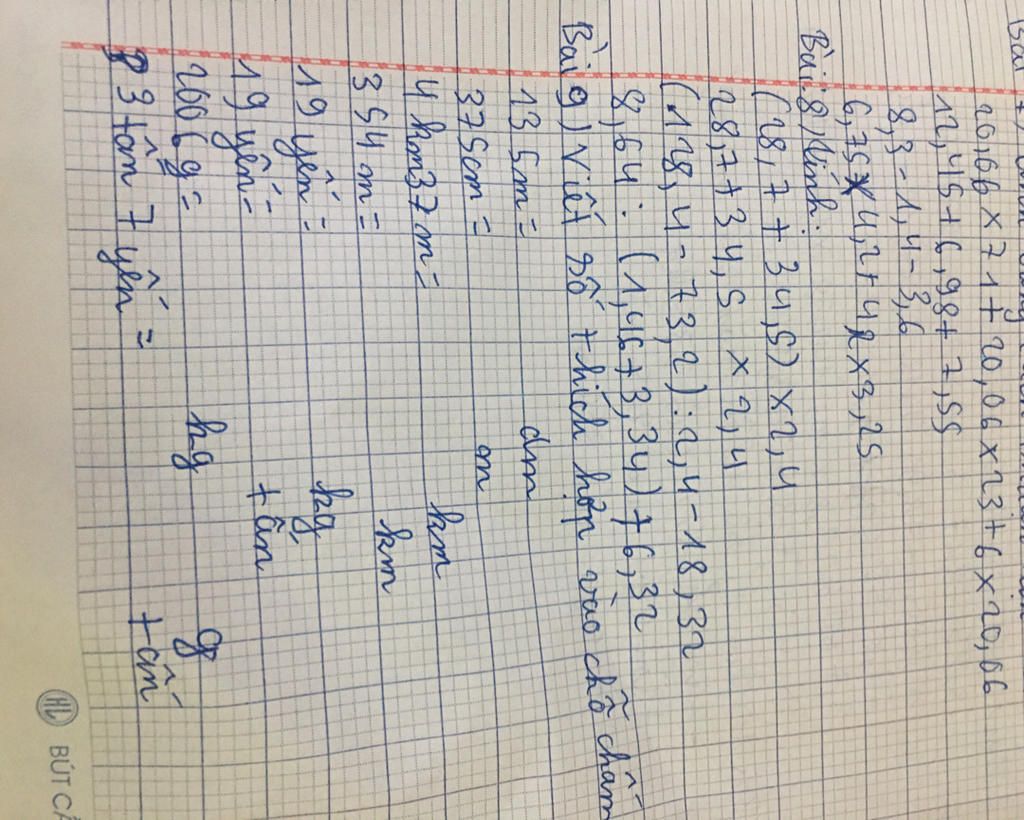 Bài
20,06 x 71 + 20,06 x 23 + 6 x 20,06
12,45 + 6,98 + 7,55
8,3 - 1,4 - 3,6
6,75 x 4,2 + 4,2 x 3,25
Bài 8) Tính:
(28,7 + 34,5) x 2,4
28,7 + 34,5 x 2,4
(128,4 - 73,2) : 2,4 - 18,32
8,64 : (1,46 + 3,34) + 6,32
Bài 9) Viết số thích hợp vào chỗ chấm
13 5m = dm
375cm = m
4 km37m = km
354m = km
19 yến = kg
19 yến = tấn
2006g = kg g
3 tấn 7 yến = tấn
HL BÚT